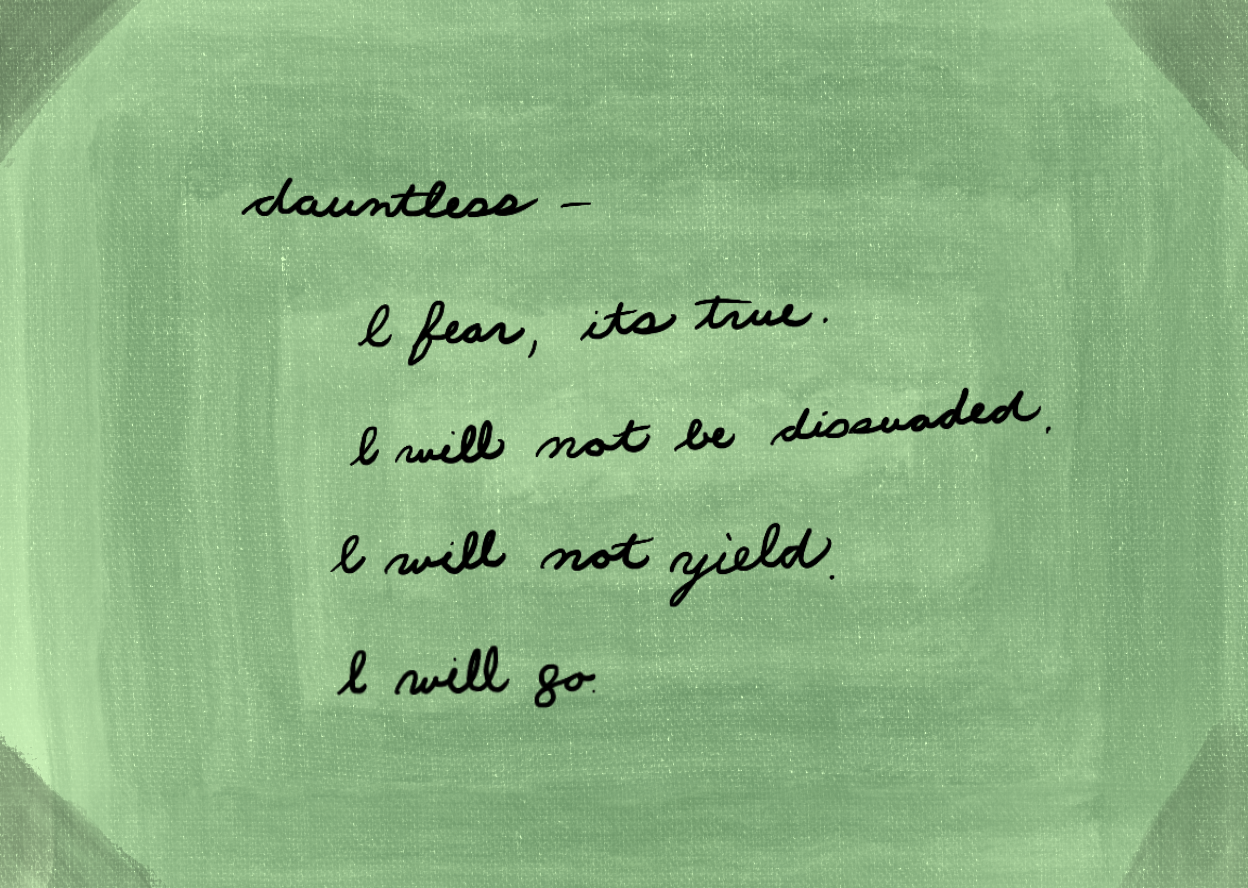 dauntless –
I fear, its true.
I will not be dissuaded.
I will not yield.
I will go.